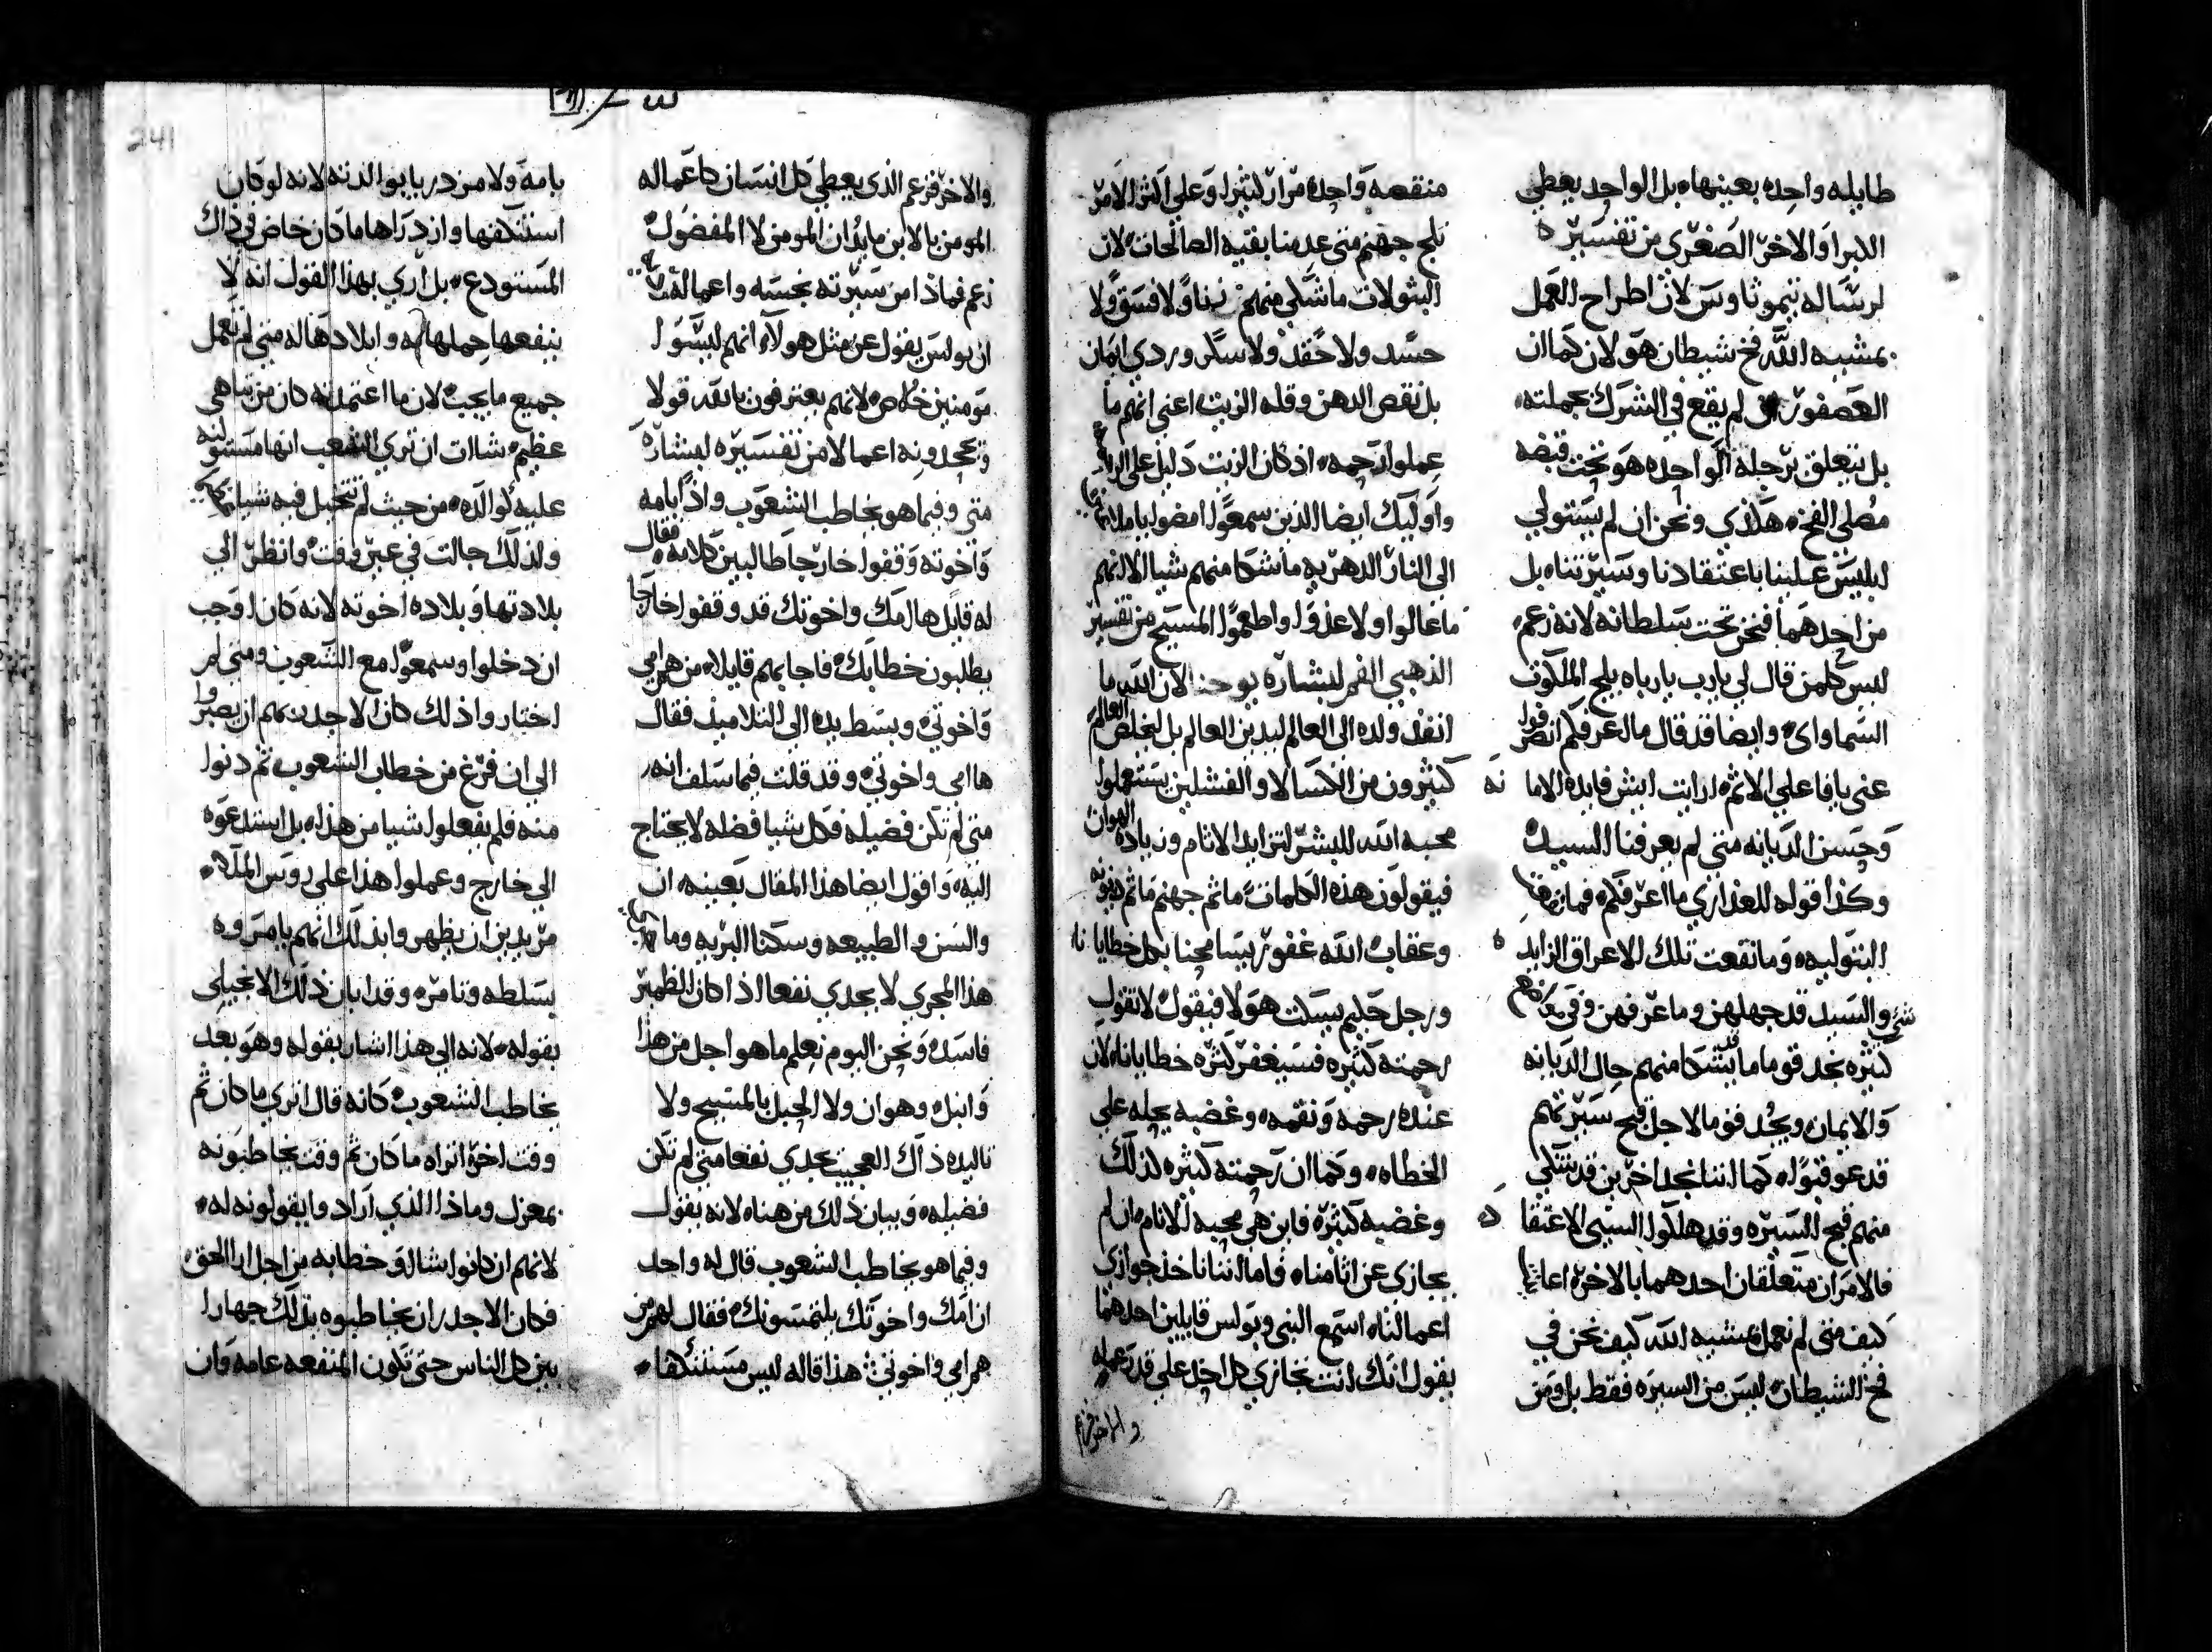 طايله واحده بعينها، بل الواحد يعطي
الابرا والاخر الصغرى من تفسيره
لرساله تيموثاوس لان اطراح العمل
بمشيه الله فخ شيطان هو لان كما ان
العصفور لم يقع في الشرك بجملته،
بل يتعلق برجله الواحده هو تحت قبضه
مصلي الفخ، هكذي ونحن ان لم يستولي
ابليس علينا باعتقادنا وسيرتنا، بل
من احدهما فنحن تحت سلطانه لانه زعم،
ليس كلمن قال لي يارب يارباه يلج الملكوت
السماواي، وايضا قد قال مااعرفكم انصرفوا
عني يافاعلي الاثم، ارايت ايش فايده الامانه
وحسن الديانه متى لم يعرفنا السيد،
وكذا قوله للعذاري مااعرفكم، فما
البتوليه، وما نفعت تلك الاعراق الزايده
شي والسيد قد جهلهن وما عرفهن وفي مواضع
كثيره نجد قوما ما يتشكا منهم حال الديانه
والايمان، ويجد قوما لاجل قبح سيرتهم
قد عوقبوا، كما اننا نجد اخرين قد يتشكي
منهم قبح السيره وقد هلكوا السيي الاعتقاد
فالامران متعلقان احدهما بالاخر، اعاينا
كيف متى لم نعمل بمشيه الله كيف نحن في
فخ الشيطان، ليس من السيره فقط بل ومن
منقصه واحده مرارا كثيرا وعلى اكثر الامر
نلج جهنم متى عدمنا بقيه الصالحات، لان
البثولات ما شكي منهم زناوًلا فسق ولا
حسد ولا حقد ولا سكر وردي ايمان
بل نقص الدهن وقله الزيت، اعني انهم ما
عملوا رحمه، اذ كان الزيت دليل على الرحمه
واوليك ايضا الذين سمعوا امضوا ياملاعين
الى النار الدهريه ما تشكا منهم شيا الا انهم
ماعالوا ولا غذوا واطعموا المسيح من تفسير
الذهبي الفم لبشاره يوحنا لان الله ما
انفذ ولده الى العالم ليدين العالم بل ليخلص العالم
كثيرون من الكسالا والفشلين يستعملوا
محبه الله للبشر لتزايد الاثام وزياده الهوان
فيقولون هذه الكلمات ما ثم جهنم ما ثم دينونه
وعقاب، الله غفور يسامحنا بكل خطايانا
ورجل حليم يسكت هولا فيقول، لا تقول
رحمته كثيره فسيغفر كثره خطايانا، لان
عنده رحمه ونقمه، وغضبه يحله على
الخطاه، وكما ان رحمته كثيره لذلك
وغضبه كثير، فاين هي محبه الانام، ان لم
يجازي عن اثامنا، فاما اننا ناخذ جوازي
اعمالنا، استمع النبي وبولس قايلين احدهما
يقول انك انت تجازي كل احد على قدر عمله
والاخر زعم
والاخر فزعم الذي يعطي كل انسان كاعماله
المومن بالابن ما يدان المومن لا المفضول،
زعم فماذا من سيرته نجسه واعماله
ان بولس يقول عن مثل هولا، انهم ليسوا
مومنين خلاص، لانهم يعترفون بالله قولا
وتجحدونه اعمالا من تفسيره لبشاره
متى وفيما هو يخاطب الشعوب واذا بامه
واخوته وقفوا خارجا طالبين كلامه، فقال
له قايل ها امك واخوتك قد وقفوا خارجا
يطلبون خطابك، فاجابهم قايلا، من هم امي
واخوتي، وبسط يده الى التلاميذ، فقال
ها امي واخوتي، وقد قلت فيما سلف انه،
متى لم تكن فضيله فكل شيا فضله لا يحتاج
اليه، واقول ايضا هذا المقال بعينه، ان
والسن والطبيعه وسكنا البريه وما
هذا المجري لا يجدي نفعا اذا كان الضمير
فاسد، ونحن اليوم نعلم ما هو اجل من هذا
وانبل، وهو ان ولا الحبل بالمسيح ولا
تاليده ذاك العجيب يجدي نفعا متى لم تكن
فضيله، وبيان ذلك من هناه، لانه يقول
وفيما هو يخاطب الشعوب قال له واحد
ان امك واخوتك يلتمسونك، فقال لهم من
هم امي واخوتي، هذا قاله ليس مستنكفا،
بامه ولا مزدريا بوالدته، لانه لو كان
استنكفها وازدراها ما كان خاض في ذاك
المستودع، بل اري بهذا القول انه لا
ينفعها حملها به وايلادها له متى لم تعمل
جميع ما يجب، لان ما اعتمدته كان من تباهي
عظيم، شاات ان تري الشعب انها مستوليه
عليه لوالده، من حيث لم تتخيل فيه شيا
ولذلك جاات في غير وقت، وانظر الى
بلادتها وبلاده اخوته لانه كان اوجب
ان دخلوا وسمعوا مع الشعوب، ومتى لم
اختار واذلك كان الاجدر بهم ان يصبروا
الى ان فرغ من خطاب الشعوب، ثم دنوا
منه فلم يفعلوا شيا من هذا، بل استدعوه
الى خارج وعملوا هذا على روس الملا،
مريدين ان يظهروا بذلك انهم يامروه
بسلطه وتامر، وقد ابان ذلك الانجيلي
بقوله، لانه الى هذا اشار بقوله وهو بعد
يخاطب الشعوب، كانه قال اتري ما كان ثم
وقت اخر، اتراه ما كان ثم وقت يخاطبونه
بمعزل وماذا الذي ارادوا يقولونه له،
لانهم ان كانوا شااوا خطابه من اجل ارا الحق
فكان الاجدر ان يخاطبوه بذلك جهارا
بين كل الناس حتى تكون المنفعه عامه وان
241